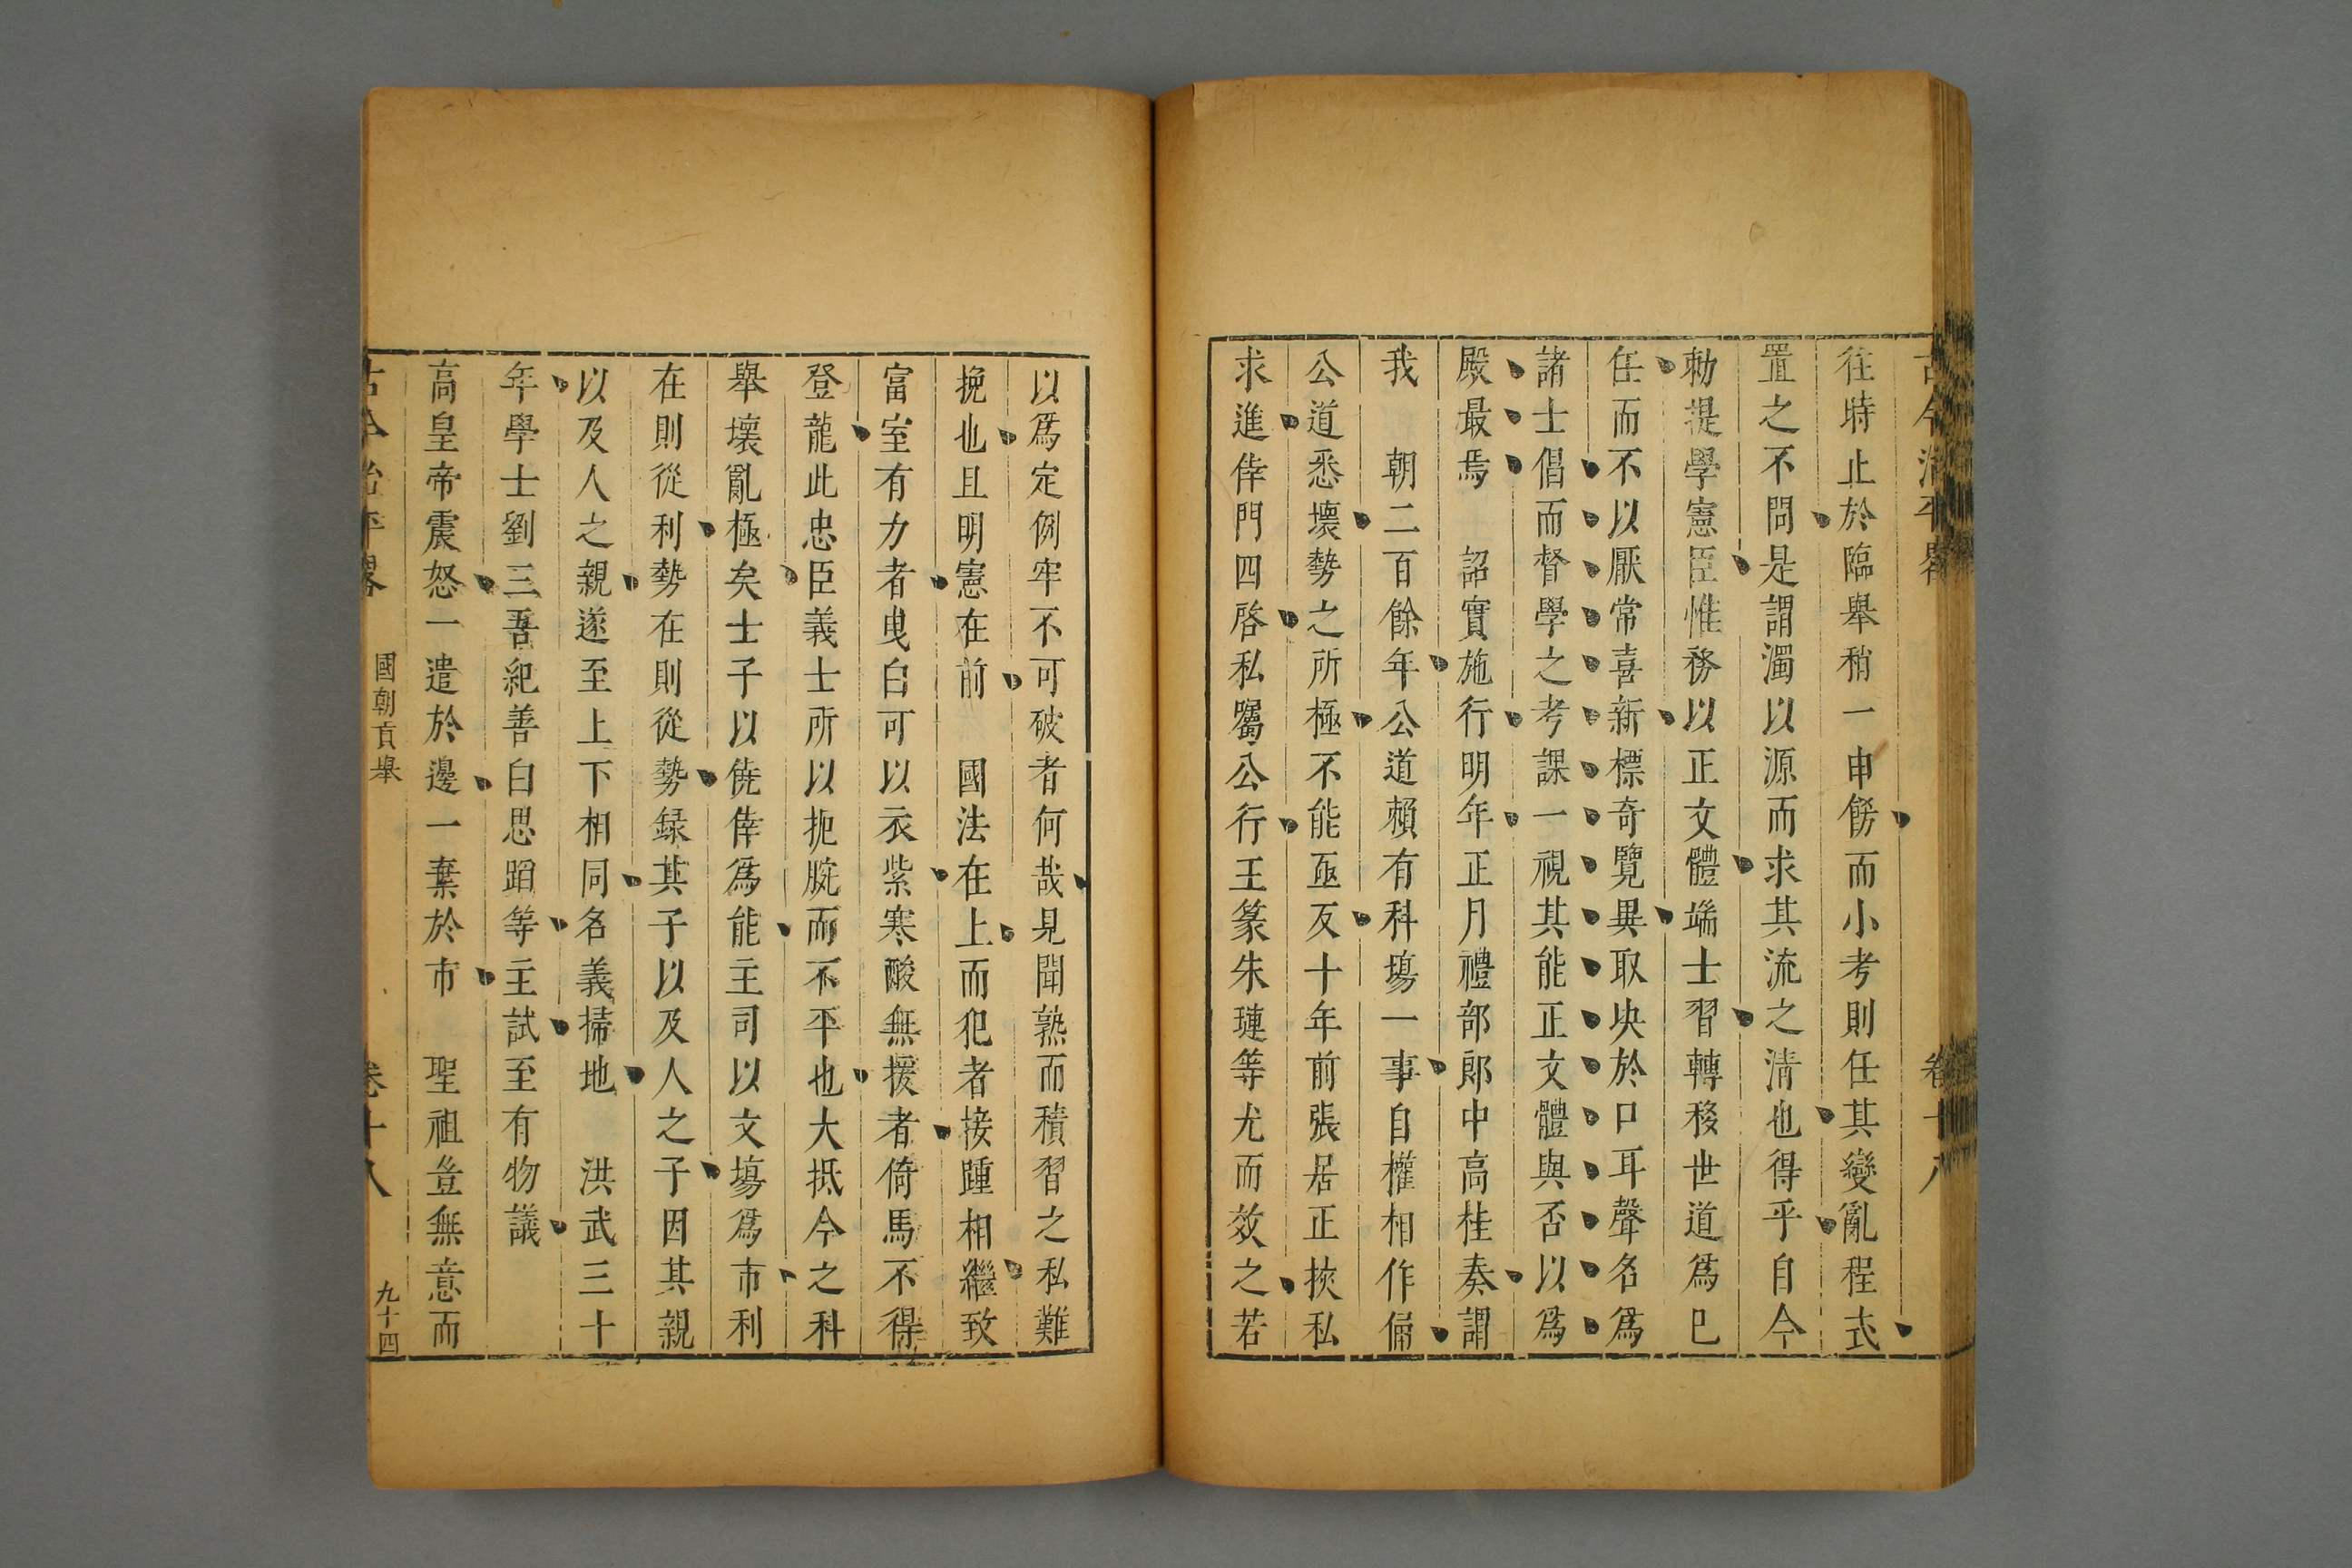 往時止於臨舉稍一申飭而小考則任其變亂程式
置之不問是謂濁以源而求其流之清也得乎自今
勅提學憲臣惟務以正文體端士習轉移世道爲已
任而不以厭常喜新標奇覽異取决於口耳聲名爲
諸士倡而督學之考課一視其能正文體與否以爲
殿最焉 詔實施行明年正月禮部郎中高桂奏謂
我 朝二百餘年公道賴有科塲一事自權相作俑
公道悉壞勢之所極不能亟反十年前張居正挾私
求進倖門四啓私囑公行王篆朱璉等尤而效之若
以爲定例牢不可破者何哉見聞熟而積習之私難
挽也且明憲在前 國法在上而犯者接踵相繼致
富室有力者曳白可以衣紫寒酸無援者倚馬不得
登龍此忠臣義士所以扼腕而不平也大抵今之科
舉壞亂極矣士子以僥倖爲能主司以文塲爲市利
在則從利勢在則從勢録其子以及人之子因其親
以及人之親遂至上下相同名義掃地 洪武三十
年學士劉三吾紀善白思蹈等主試至有物議
高皇帝震怒一遣於邊一棄於市 聖祖豈無意而
國朝貢舉
卷十八
九十四